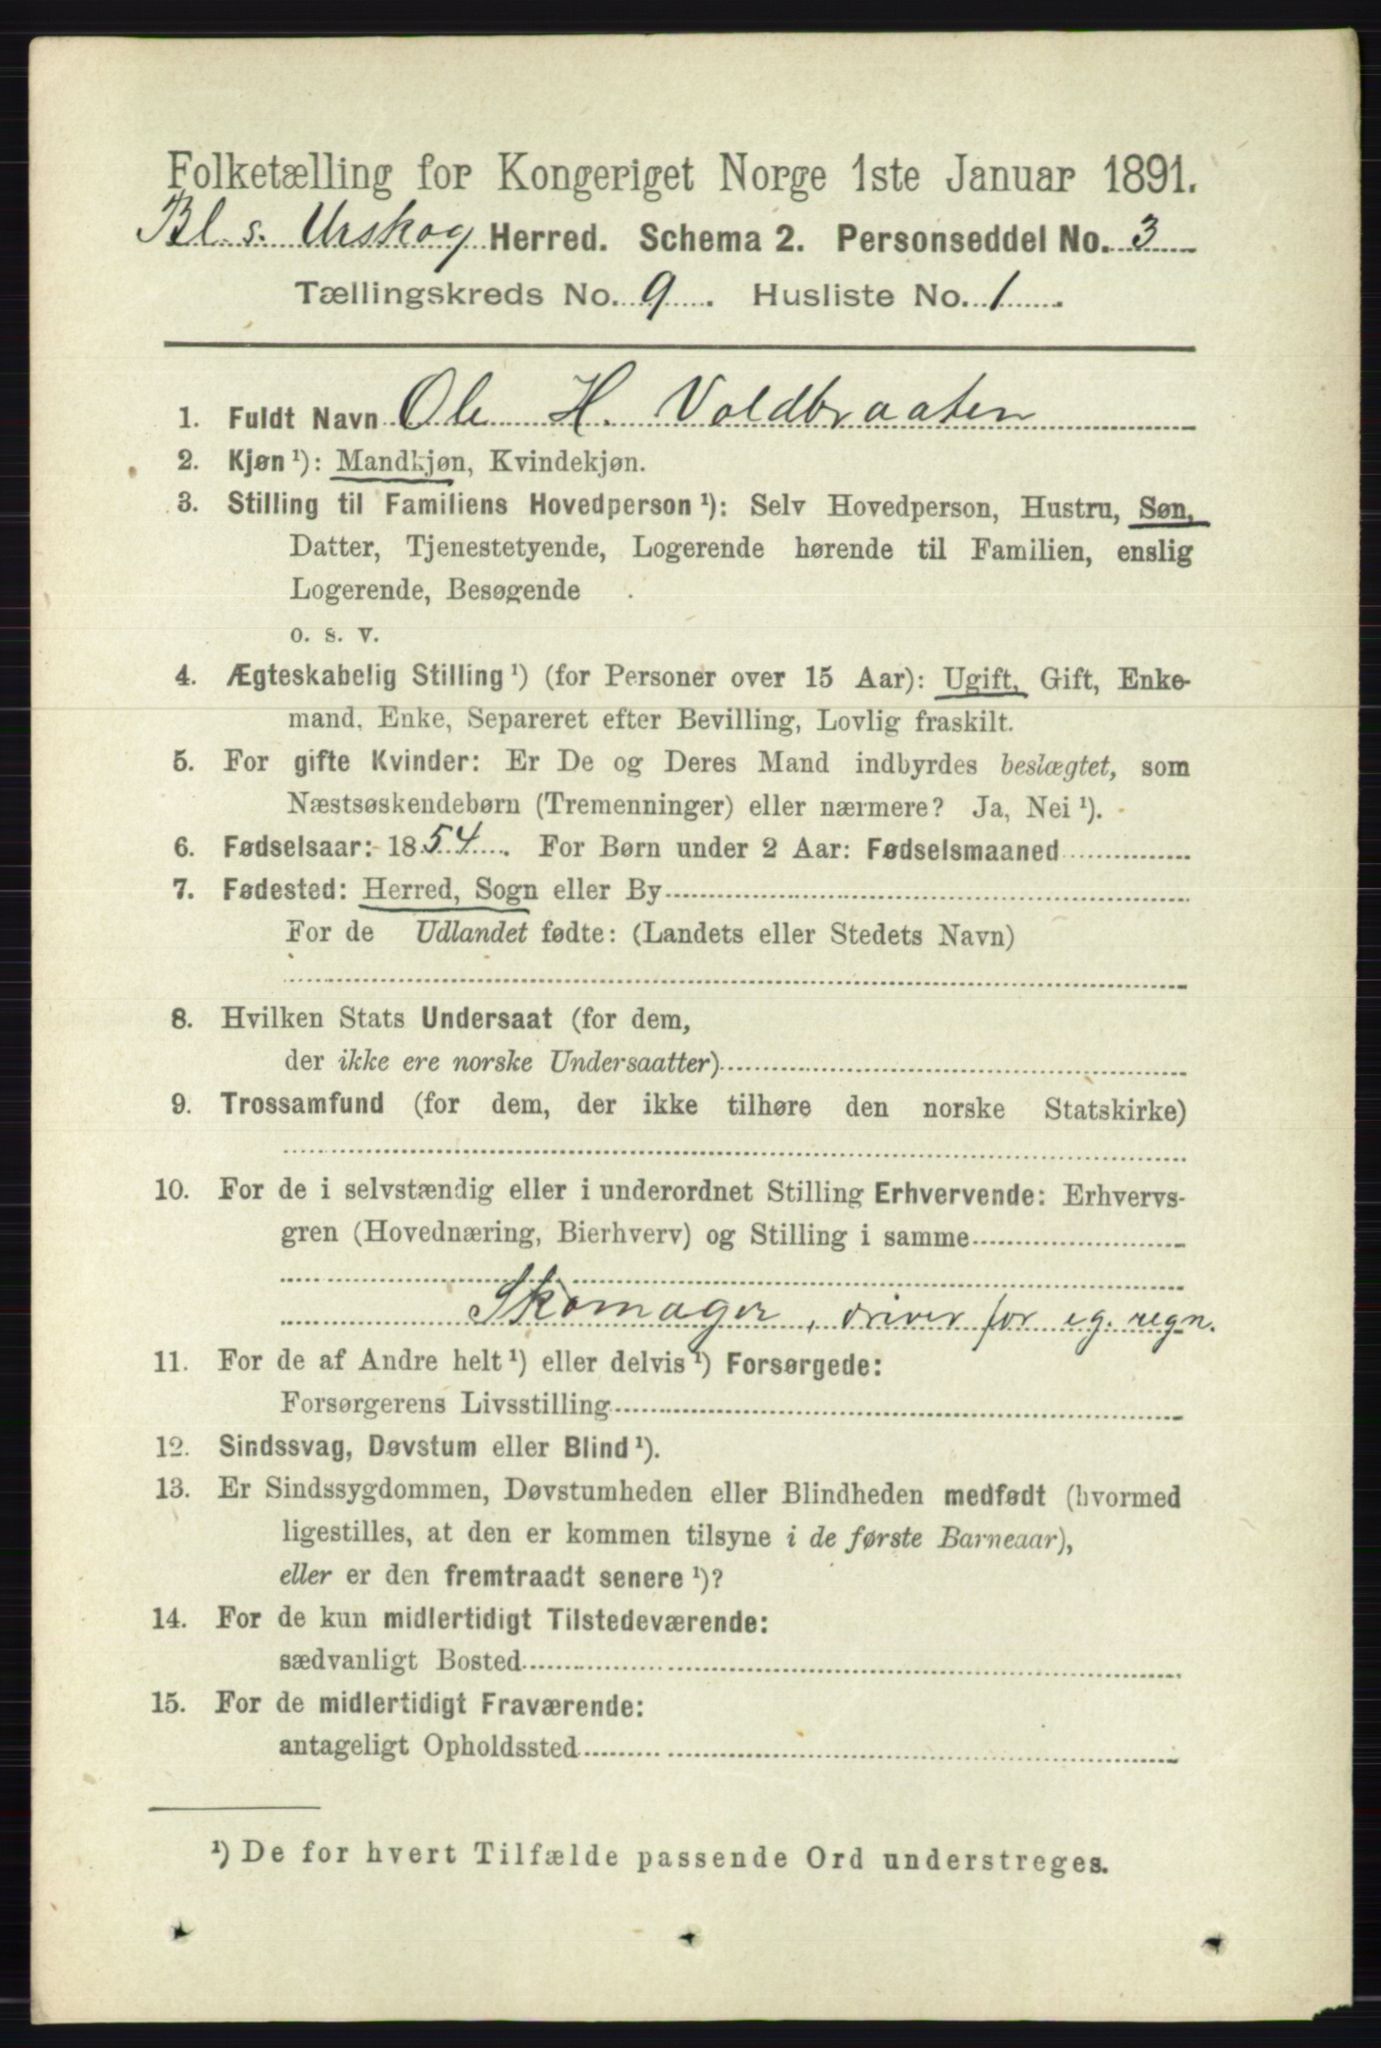 Folketælling for Kongeriget Norge 1ste Januar 1891.
Bl. s. Urskog Herred. Schema 2. Personseddel No. 3
Tællingskreds No. 9. Husliste No. 1.
1. Fuldt Navn Ole H. Voldbraaten
2. Kjøn ¹): Mandkjøn, Kvindekjøn.
3. Stilling til Familiens Hovedperson ¹): Selv Hovedperson, Hustru, Søn,
Datter, Tjenestetyende, Logerende hørende til Familien, enslig
Logerende, Besøgende
o. s. v.
4. Ægteskabelig Stilling ¹) (for Personer over 15 Aar): Ugift, Gift, Enke-
mand, Enke, Separeret efter Bevilling, Lovlig fraskilt.
5. For gifte Kvinder: Er De og Deres Mand indbyrdes beslægtet, som
Næstsøskendebørn (Tremenninger) eller nærmere? Ja, Nei ¹).
6. Fødselsaar: 1854. For Børn under 2 Aar: Fødselsmaaned
7. Fødested: Herred, Sogn eller By
For de Udlandet fødte: (Landets eller Stedets Navn)
8. Hvilken Stats Undersaat (for dem,
der ikke ere norske Undersaatter)
9. Trossamfund (for dem, der ikke tilhøre den norske Statskirke)
10. For de i selvstændig eller i underordnet Stilling Erhvervende: Erhvervs-
gren (Hovednæring, Bierhverv) og Stilling i samme
Skomager, driver for eg. regn.
11. For de af Andre helt ¹) eller delvis ¹) Forsørgede:
Forsørgerens Livsstilling
12. Sindssvag, Døvstum eller Blind ¹).
13. Er Sindssygdommen, Døvstumheden eller Blindheden medfødt (hvormed
ligestilles, at den er kommen tilsyne i de første Barneaar),
eller er den fremtraadt senere ¹)?
14. For de kun midlertidigt Tilstedeværende:
sædvanligt Bosted
15. For de midlertidigt Fraværende:
antageligt Opholdssted
¹) De for hvert Tilfælde passende Ord understreges.